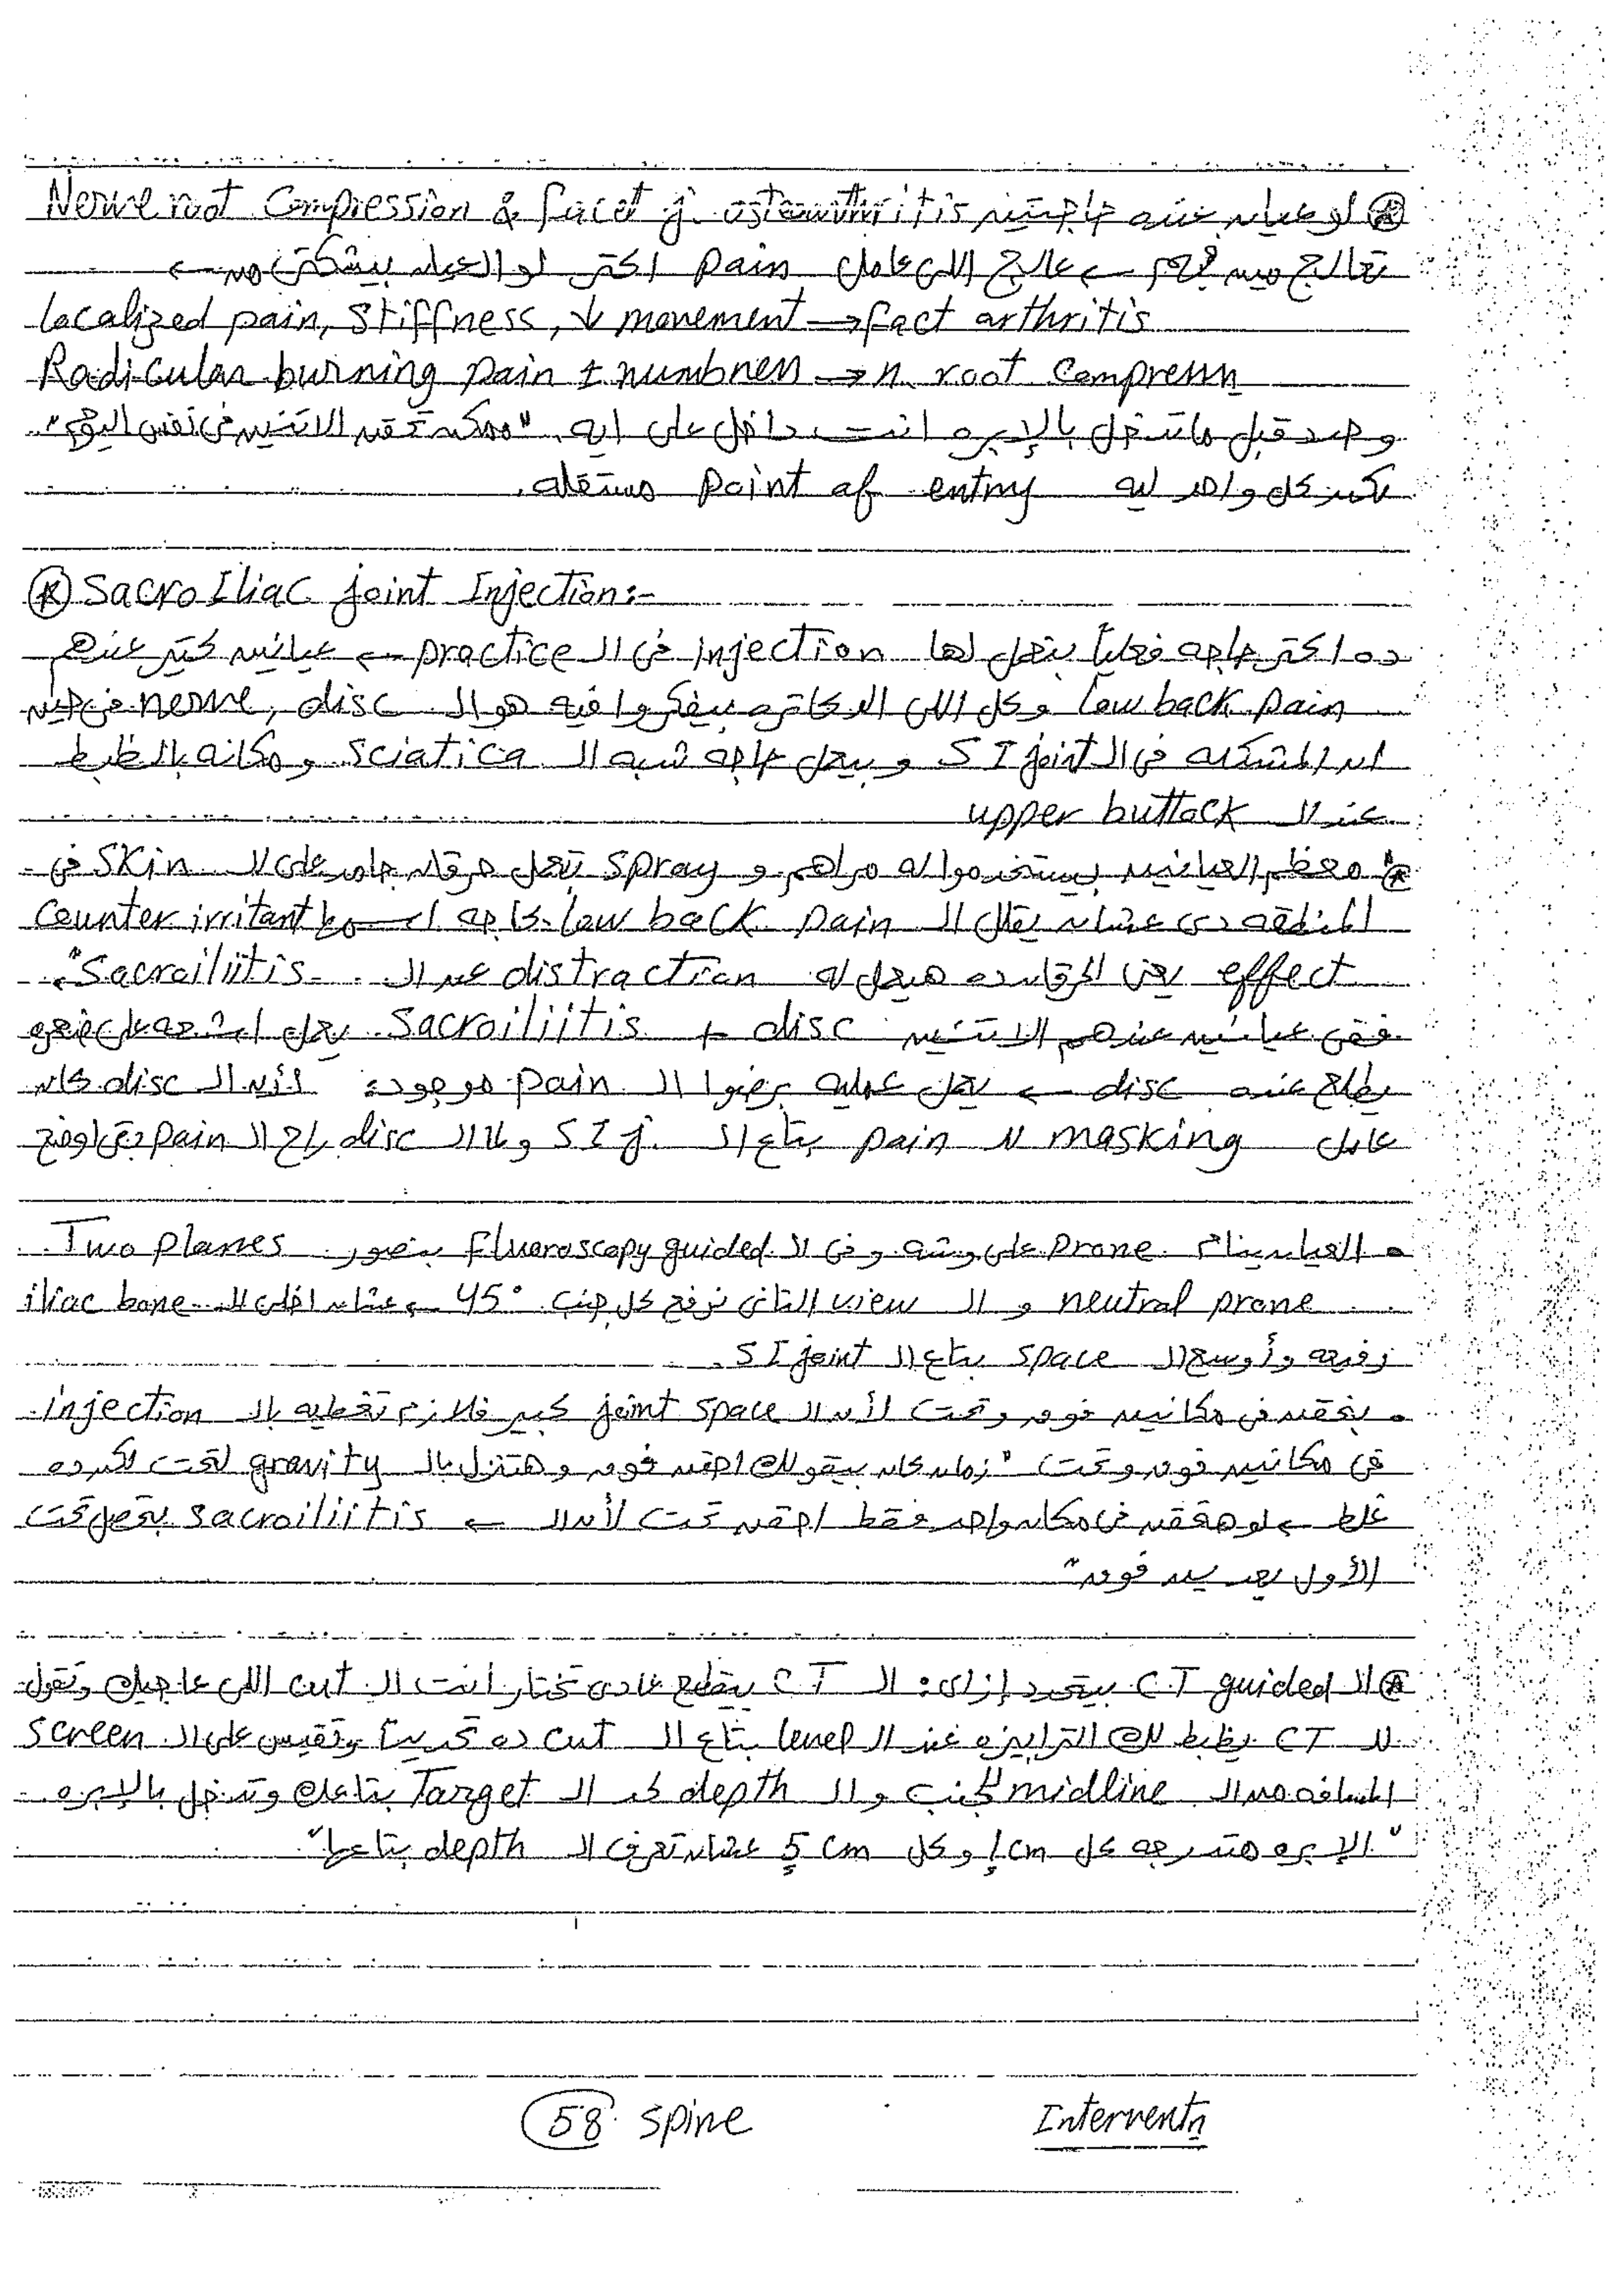 لو عيان عنده حاجتين Nerve root Compression & facet j. osteoarthritis
تعالج مين فيهم ← عالج اللى عامل pain اكتر لو العيان بيشتكى من ←
localized pain, stiffness, ↓ movement → fact arthritis
Radicular burning pain ± numbness → n. root compressn
وحدد قبل ما تدخل بالإبره انت داخل على ايه "ممكن تحقن الاتنين فى نفس اليوم"
لكن كل واحد ليه point of entry مستقله.
Sacro Iliac joint Injection:-
ده اكتر حاجه فعلياً بنعمل لها injection فى الـ practice ← عيانين كتير عندهم
low back pain وكل اللى الدكاتره بيفكروا فيه هو الـ nerve, disc فى حين
ان المشكله فى الـ S I joint و بيعمل حاجه شبه الـ sciatica و مكانه بالظبط
عند الـ upper buttock
معظم العيانين بيستخدموا له مراهم و spray بتعمل حرقان جامد على الـ skin فى
المنطقه دى عشان يقلل الـ low back pain كحاجه اسمها Counter irritant
effect يعنى الحرقان ده هيعمل له distraction عن الـ Sacroiliitis".
ففى عيانين عندهم الاتنين disc + Sacroiliitis يعمل اشعه على ضهره
يطلع عنده disc ← يعمل عمليه برضوا الـ pain موجود، لأن الـ disc كان
عامل masking للـ pain بتاع الـ S I j. ولما الـ disc راح الـ pain بقى اوضح
• العيان بينام prone على وشه و فى الـ Fluoroscopy guided بنصور Two planes
neutral prone و الـ view التانى نرفع كل جنب 45° ← عشان اخلى الـ iliac bone
رفيعه وأوسع الـ space بتاع الـ S I joint.
• بنحقن فى مكانين فوق وتحت لأن الـ joint space كبير فلازم تغطيه بالـ injection
فى مكانين فوق وتحت "زمان كان بيقولك احقن فوق وهتنزل بالـ gravity لتحت لكن ده
غلط ← لو هتحقن فى مكان واحد فقط احقن تحت لأن الـ ← sacroiliitis بتحصل تحت
الأول بعدين فوق"
الـ CT guided بيتحدد إزاى: الـ CT بيقطع عادى تختار أنت الـ cut اللى عاجبك وتقول
للـ CT يظبط لك الترابيزه عند الـ level بتاع الـ cut ده تحديداً وتقيس على الـ screen
المسافه من الـ midline للجنب والـ depth لحد الـ Target بتاعك وتدخل بالإبره
"الإبره متدرجه كل 1 cm وكل 5 cm عشان تعرف الـ depth بتاعها"
58 spine
Interventn